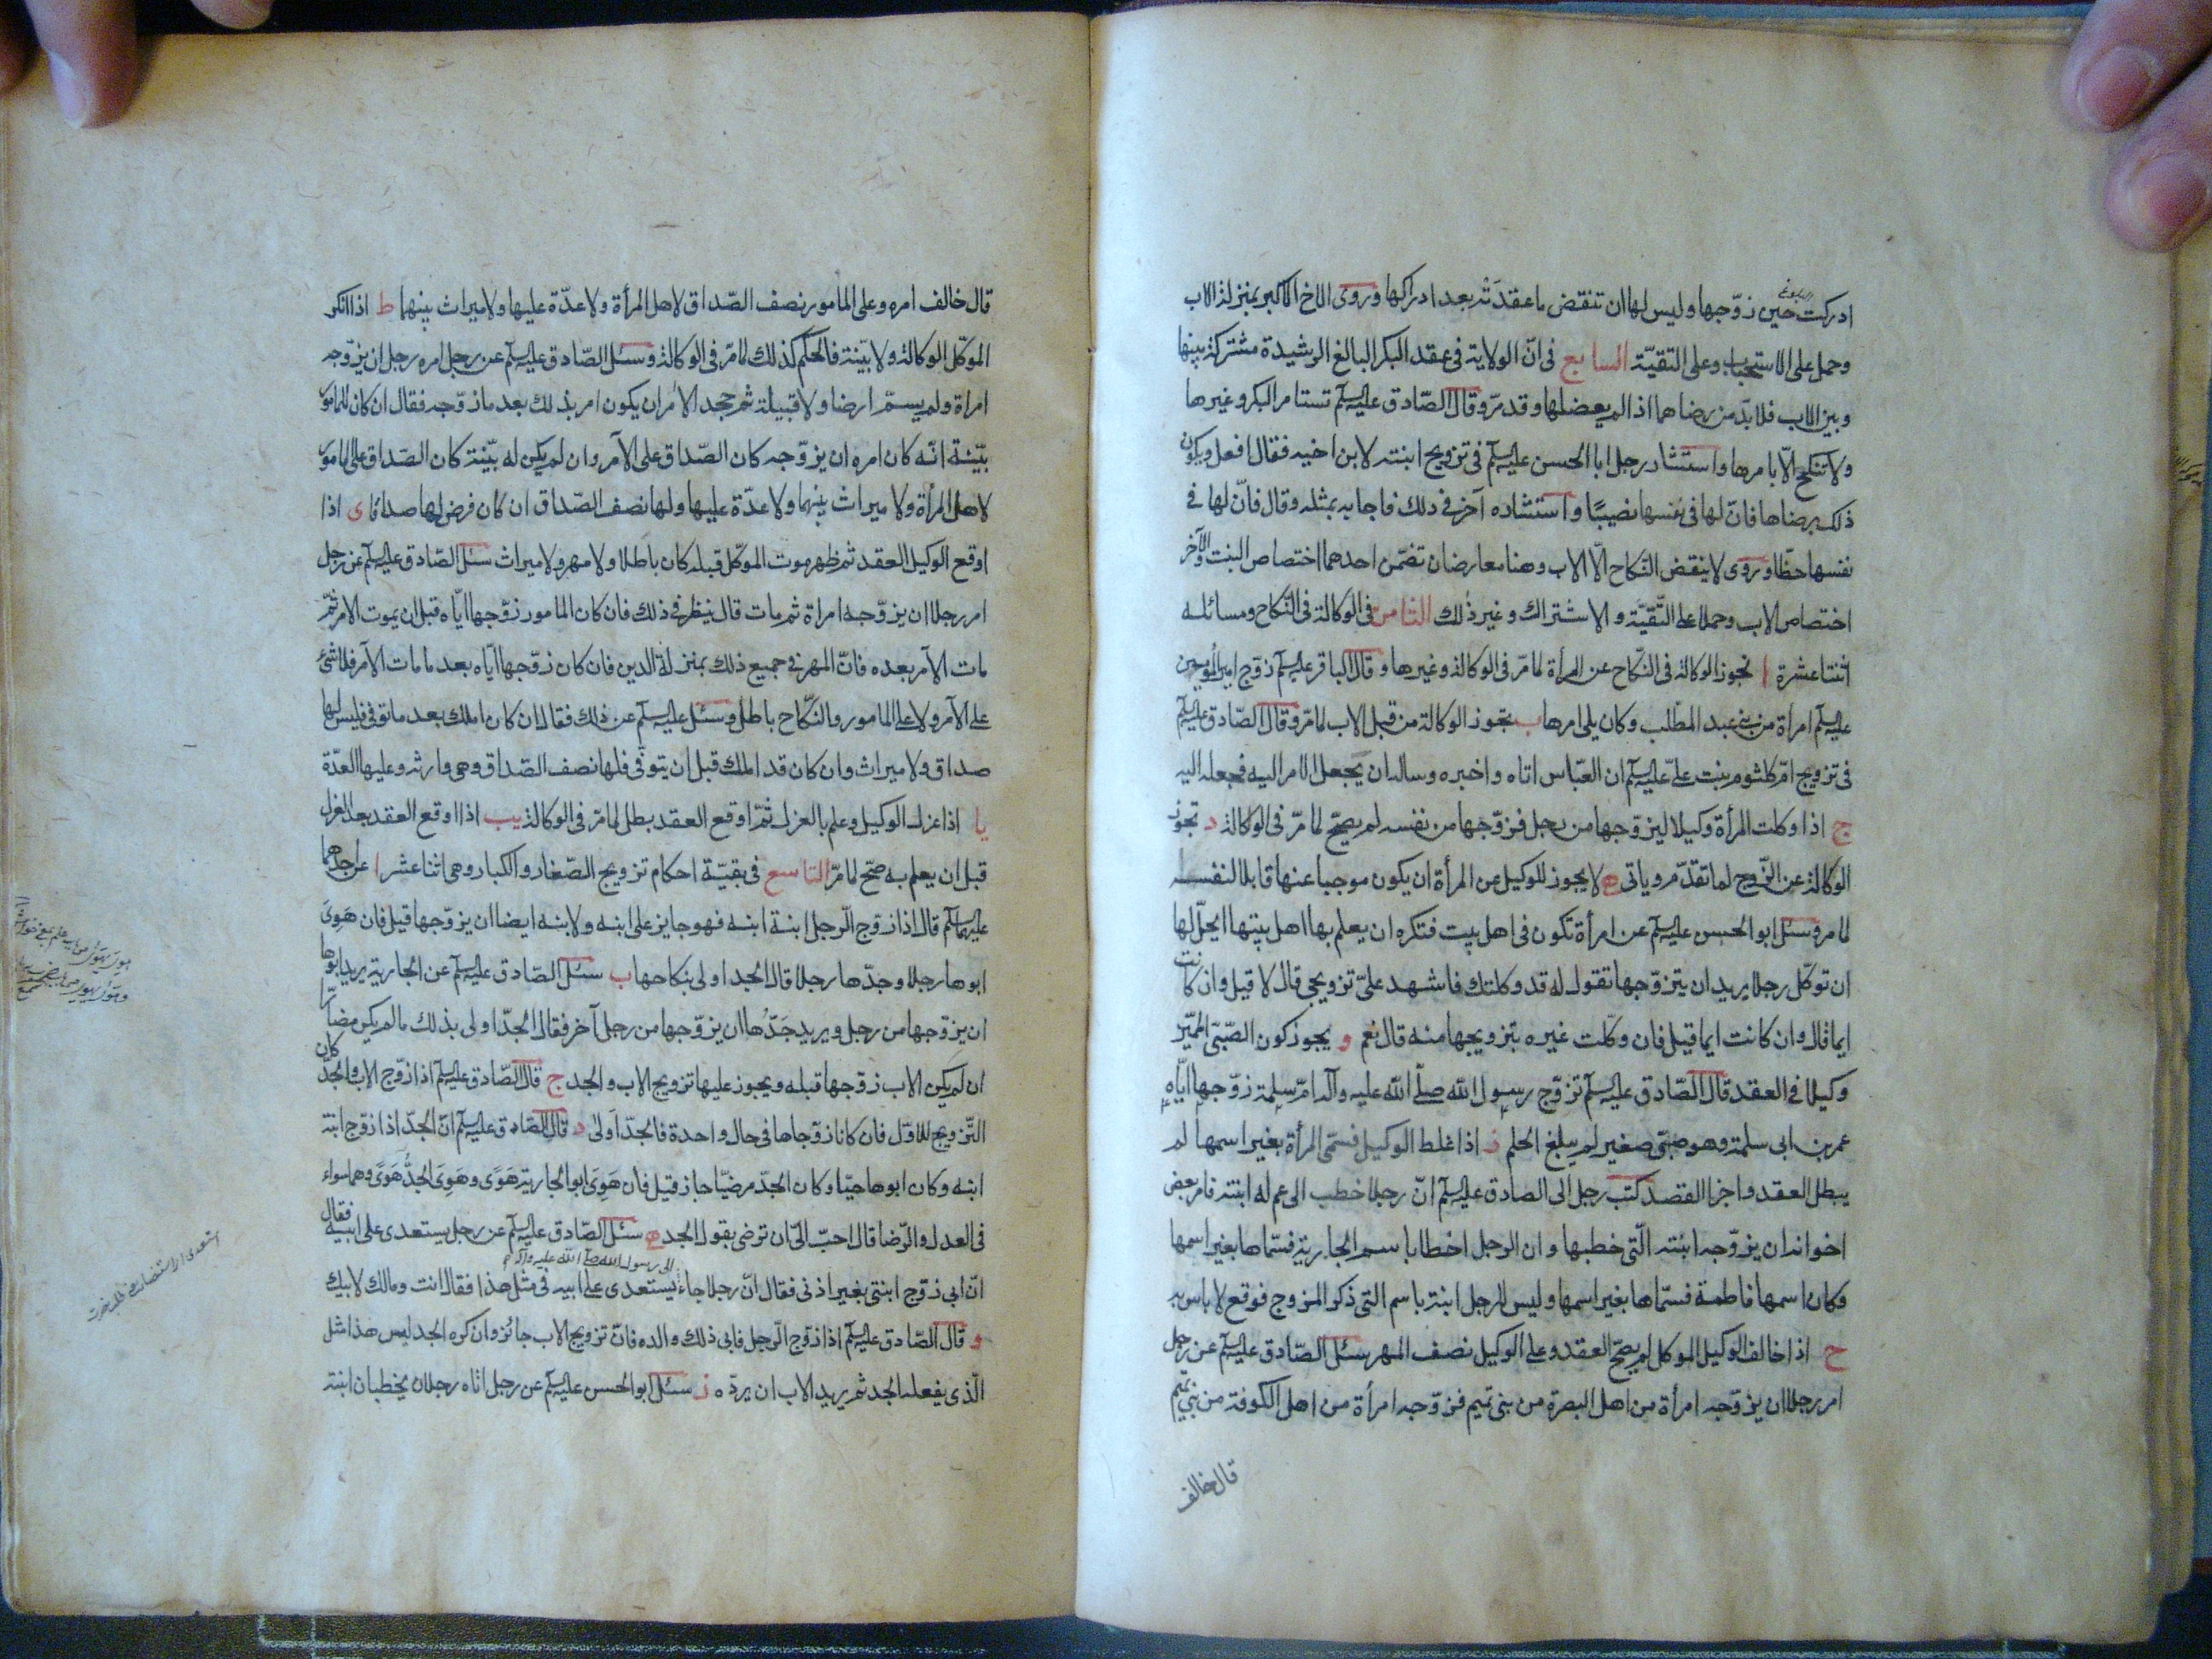 ادركت حين زوّجها وليس لها ان تنقض ما عقدته بعد ادراكها وروى الاخ الاكبر بمنزلة الاب
وحمل على الاستحباب وعلى التقيّة السابع فى انّ الولاية فى عقد البكر البالغ الرشيدة مشتركة بينها
وبين الاب فلا بدّ من رضاهما اذا لم يعضلها وقد مرّ وقال الصّادق عليه السلم تستامر البكر وغيرها
ولا تنكح الّا بامرها واستشار رجل ابا الحسن عليه السلم فى تزويج ابنته لابن اخيه فقال افعل ويكون
ذلك برضاها فانّ لها فى نفسها نصيبًا واستشاره آخر فى ذلك فاجابه بمثله وقال فانّ لها فى
نفسها حظّا وروى لا ينقض النّكاح الّا الاب وهنا معارضان تضمّن احدهما اختصاص البنت والآخر
اختصاص الاب وحملا على التّقيّة والاشتراك وغير ذلك الثامن فى الوكالة فى النّكاح ومسائله
اثنتا عشرة ا تجوز الوكالة فى النّكاح عن المرأة لما مرّ فى الوكالة وغيرها وقال الباقر عليه السلم زوّج امير المؤمنين
عليه السلم امرأة من بنى عبد المطّلب وكان يلى امرها ب تجوز الوكالة من قبل الاب لما مرّ وقال الصّادق عليه السلم
فى تزويج امّ كلثوم بنت علىّ عليه السلم ان العبّاس اتاه واخبره وساله ان يجعل الامر اليه فجعله اليه
ج اذا وكلت المرأة وكيلا ليزوّجها من رجل فزوّجها من نفسه لم يصحّ لما مرّ فى الوكالة د تجوز
الوكالة عن الزّوج لما تقدّم وياتى ه لا يجوز للوكيل عن المرأة ان يكون موجبا عنها قابلا لنفسه
لما مر وسئل ابو الحسن عليه السلم عن امرأة تكون فى اهل بيت فتكره ان يعلم بها اهل بيتها ايحلّ لها
ان توكّل رجلا يريد ان يتزوّجها تقول له قد وكلتك فاشهد علىّ تزويجى قال لا قيل وان كانت
ايما قال وان كانت ايما قيل فان وكّلت غيره بتزويجها منه قال نعم و يجوز كون الصّبىّ المميّز
وكيلا فى العقد قال الصّادق عليه السلم تزوّج رسول الله صلّى الله عليه وآله امّ سلمة زوّجها ايّاه
عمر بن ابى سلمة وهو صبىّ صغير لم يبلغ الحلم ز اذا غلط الوكيل فسمّى المرأة بغير اسمها لم
يبطل العقد واجزا القصد كتب رجل الى الصادق عليه السلم انّ رجلا خطب الى عم له ابنته فامر بعض
اخوانه ان يزوّجه ابنته الّتى خطبها وان الرجل اخطا باسم الجارية فسمّاها بغير اسمها
وكان اسمها فاطمة فسمّاها بغير اسمها وليس للرجل ابنة باسم التى ذكر المزوج فوقع لا باس به
ح اذا خالف الوكيل الموكل لم يصحّ العقد وعلى الوكيل نصف المهر سئل الصّادق عليه السلم عن رجل
امر رجلا ان يزوّجه امرأة من اهل البصرة من بنى تميم فزوّجه امرأة من اهل الكوفة من بنى تميم
قال خالف
قال خالف امره وعلى المامور نصف الصّداق لاهل المرأة ولا عدّة عليها ولا ميراث بينهما ط اذا انكر
الموكّل الوكالة ولا بيّنة فالحكم كذلك لما مرّ فى الوكالة وسئل الصّادق عليه السلم عن رجل امره رجل ان يزوّجه
امراة ولم يسمّ ارضا ولا قبيلة ثم جحد الامر ان يكون امر بذلك بعد ما زوّجه فقال ان كان للمامور
بيّنة انّه كان امره ان يزوّجه كان الصّداق على الآمر وان لم يكن له بيّنة كان الصّداق على المامور
لاهل المرأة ولا ميراث بينهما ولا عدّة عليها ولها نصف الصّداق ان كان فرض لها صداقا ى اذا
اوقع الوكيل العقد ثم ظهر موت الموكّل قبله كان باطلا ولا مهر ولا ميراث سئل الصّادق عليه السلم عن رجل
امر رجلا ان يزوّجه امراة ثم مات قال ينظر فى ذلك فان كان المامور زوّجها ايّاه قبل ان يموت الامر ثمّ
مات الآمر بعده فانّ المهر فى جميع ذلك بمنزلة الدين فان كان زوّجها ايّاه بعد ما مات الآمر فلا شىء
على الآمر ولا على المامور والنّكاح باطل وسئل عليه السلم عن ذلك فقال ان كان املك بعد ما توفّى فليس لها
صداق ولا ميراث وان كان قد املك قبل ان يتوفّى فلها نصف الصّداق وهى وارثه وعليها العدّة
يا اذا عزل الوكيل وعلم بالعزل ثمّ اوقع العقد بطل لما مرّ فى الوكالة يب اذا اوقع العقد بعد العزل
قبل ان يعلم به صحّ لما مرّ التاسع فى بقيّة احكام تزويج الصّغار والكبار وهى اثنا عشر ا عن احدهما
عليهما السلم قال اذا زوّج الرّجل ابنة ابنه فهو جايز على ابنه ولابنه ايضا ان يزوّجها قيل فان هَوِىَ
ابوها رجلا وجدّها رجلا قال الجد اولى بنكاحها ب سئل الصّادق عليه السلم عن الجارية يريد ابوها
ان يزوّجها من رجل ويريد جَدُّها ان يزوّجها من رجل آخر فقال الجدّ اولى بذلك ما لم يكن مضارّا
ان لم يكن الاب زوّجها قبله ويجوز عليها تزويج الاب والجد ج قال الصّادق عليه السلم اذا زوّج الاب والجدّ كان
التّزويج للاوّل فان كانا زوّجاها فى حال واحدة فالجدّ اَولى د قال الصّادق عليه السلم انّ الجدّ اذا زوّج ابنة
ابنه وكان ابوها حيّا وكان الجدّ مرضيّا جاز قيل فان هَوِىَ ابو الجارية هَوًى وهَوِىَ الجدُّ هَوًى وهما سواء
فى العدل والرّضا قال احبّ الىّ ان ترضى بقول الجد ه سئل الصّادق عليه السلم عن رجل يستعدى على ابيه فقال
انّ ابى زوّج ابنتى بغير اذنى فقال انّ رجلا جاء الى رسول الله صلى الله عليه وآله يستعدى على ابيه فى مثل هذا فقال انت ومالك لابيك
و قال الصّادق عليه السلم اذا زوّج الرّجل فابى ذلك والده فانّ تزويج الاب جائز وان كره الجد ليس هذا مثل
الّذى يفعله الجد ثم يريد الاب ان يردّه ز سئل ابو الحسن عليه السلم عن رجل اتاه رجلان يخطبان ابنته